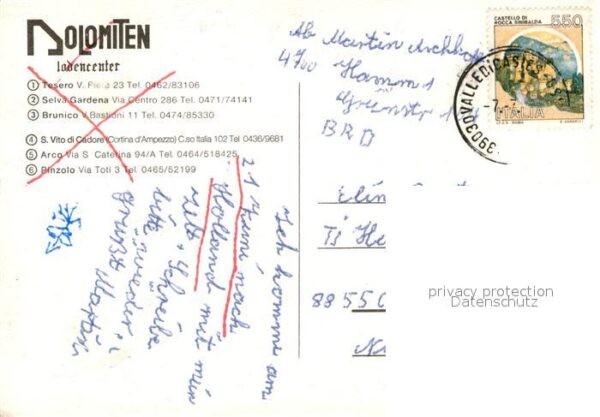 DOLOMITEN
lodencenter
① Tesero V. Fiera 23 Tel. 0462/83106
② Selva Gardena Via Centro 286 Tel. 0471/74141
③ Brunico V. Bastioni 11 Tel. 0474/85330
④ S. Vito di Cadore (Cortina d'Ampezzo) C.so Italia 102 Tel 0436/9681
⑤ Arco Via S. Caterina 94/A Tel. 0464/518425
⑥ Pinzolo Via Toti 3 Tel. 0465/52199
Ab Martin
4700 Hamm 1
BRD
CASTELLO DI
ROCCA SINIBALDA
550
ITALIA
39030 VALLE DI CASIES
Ich komme am
21 Juni nach
Holland mit mein
Zelt + Schreibe
bitte wieder
grüßt Martin
88550
privacy protection
Datenschutz